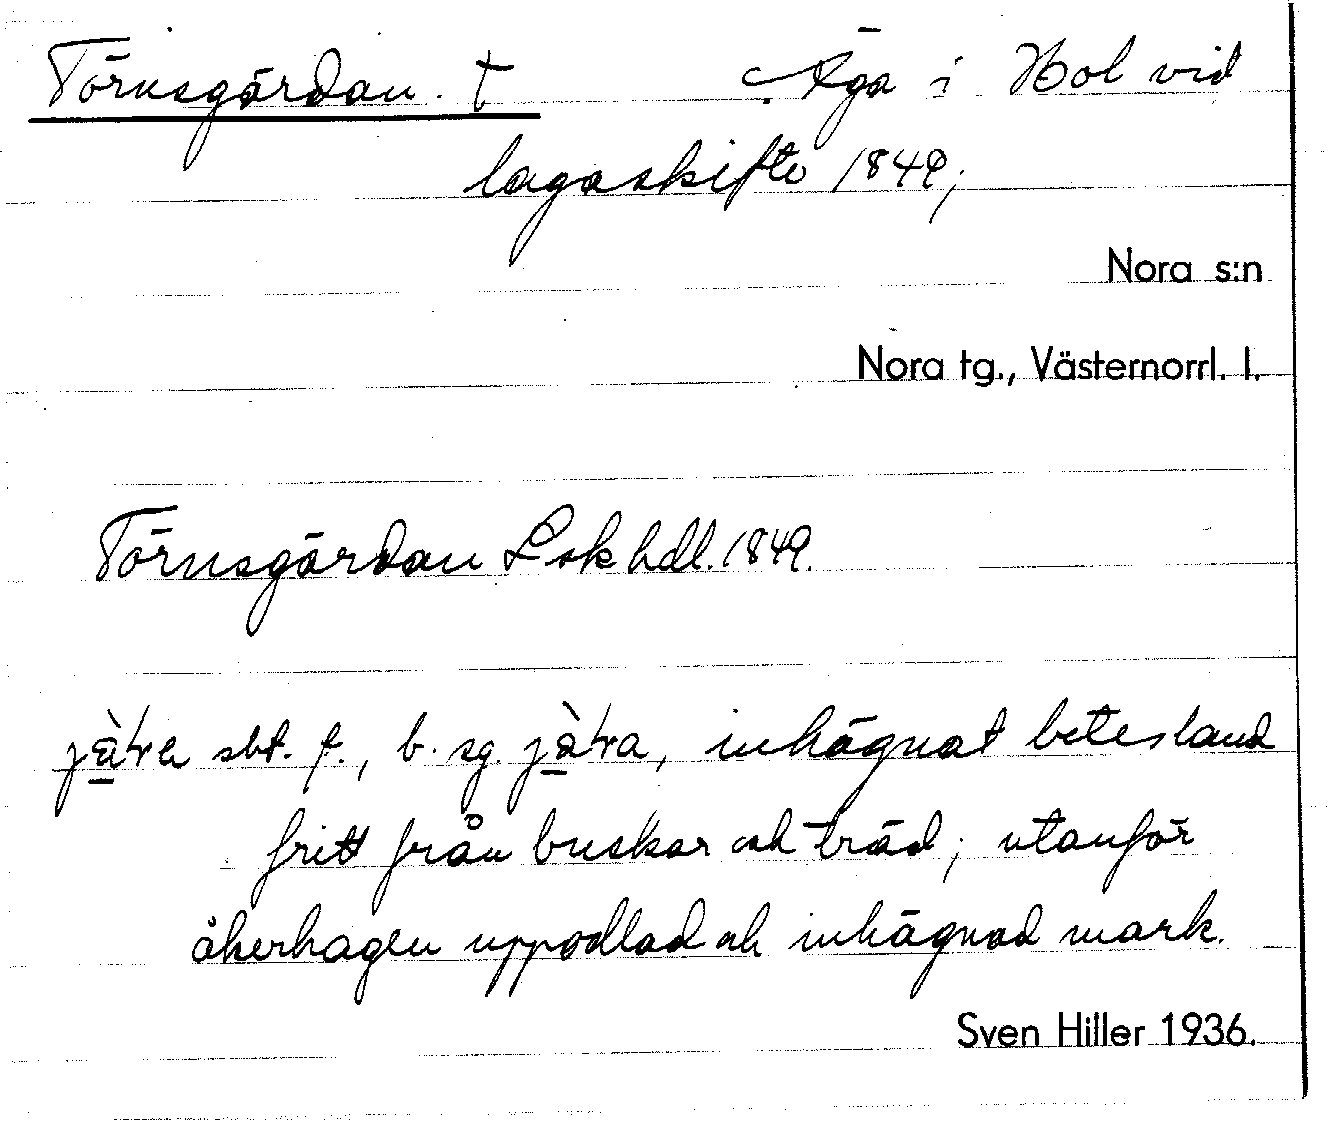 Törnsgärdan. † Äga i Hol vid
lagaskifte 1849;
Nora s:n
Nora tg., Västernorrl. l.
Törnsgärdan Lsk hdl. 1849.
sbt. f., b. sg. inhägnat betesland
fritt från buskar och träd; utanför
åkerhagen uppodlad och inhägnad mark.
Sven Hiller 1936.